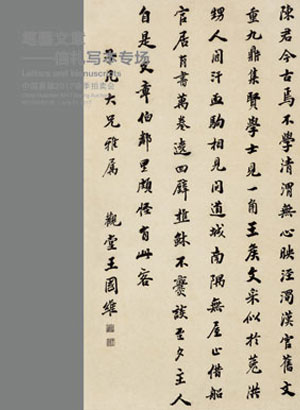 笔墨文章
——信札写本专场
Letters and Manuscripts
中国嘉德2017春季拍卖会
陳君今古焉不學清渭無心映涇濁漢官舊文
重九鼎集賢學士見一角王侯文采似於菟洪
甥人間汗血駒相見問道城南隅無屋止借船
官居有書萬卷遶四壁樵蘇不爨談至夕主人
自是文章伯鄰里頗怪有此客
凡大兄雅屬 觀堂王國維